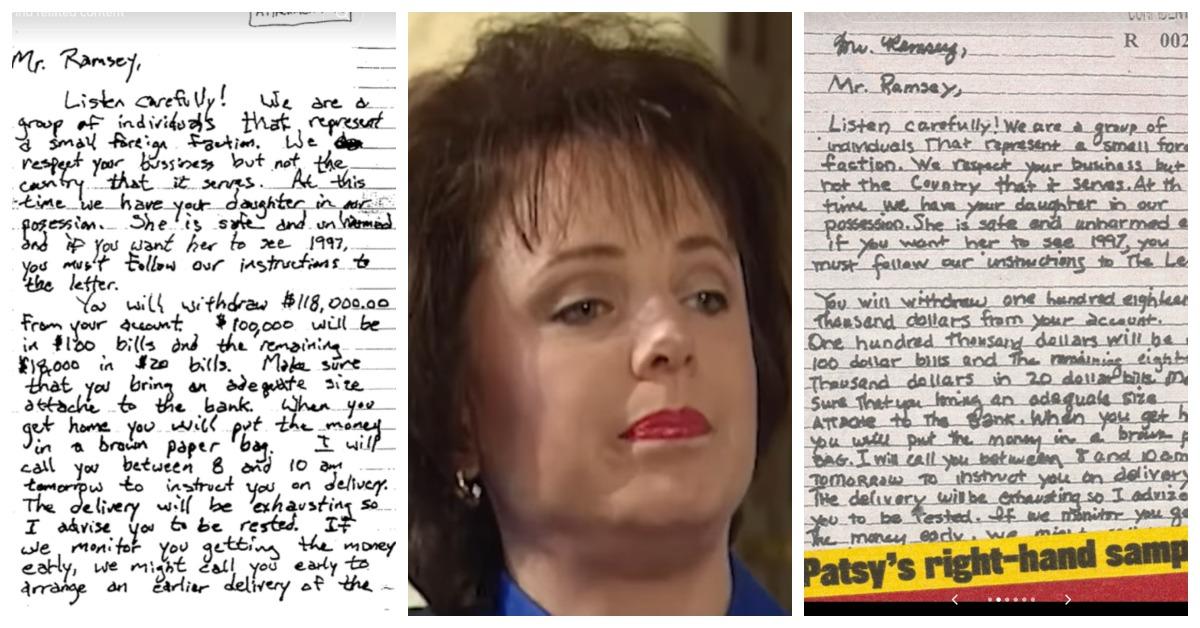 and related content
Mr. Ramsey,
Listen carefully! We are a
group of individuals that represent
a small foreign faction. We
respect your bussiness but not the
country that it serves. At this
time we have your daughter in our
posession. She is safe and unharmed
and if you want her to see 1997,
you must follow our instructions to
the letter.
You will withdraw $118,000.00
from your account. $100,000 will be
in $100 bills and the remaining
$18,000 in $20 bills. Make sure
that you bring an adequate size
attache to the bank. When you
get home you will put the money
in a brown paper bag. I will
call you between 8 and 10 am
tomorrow to instruct you on delivery.
The delivery will be exhausting so
I advise you to be rested. If
we monitor you getting the money
early, we might call you early to
arrange an earlier delivery of the
R 002
Mr. Ramsey,
Mr. Ramsey,
Listen carefully! We are a group of
individuals That represent a small fore
faction. We respect your business but
not the Country that it serves. At th
time we have your daughter in our
possession. She is safe and unharmed
if you want her to see 1997, you
must follow our instructions to The Le
You will withdraw one hundred eighteen
Thousand dollars from your account.
One hundred Thousand dollars will be
100 dollar bills and The remaining eight
Thousand dollars in 20 dollar bills. Ma
sure That you bring an adequate size
ATTACHE to The Bank. When you get h
you will put the money in a brown p
BAG. I will call you between 8 and 10 am
TOMORROW to instruct you on delivery
The delivery will be exhausting so I advize
you to be rested. If we monitor you ge
The money early, we might
Patsy's right-hand samp